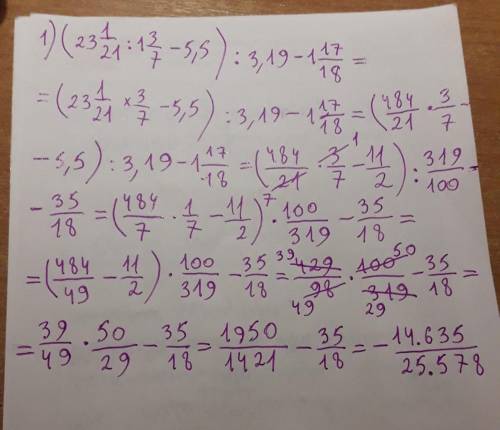 1) (23 1/21 : 1 3/7 - 5,5) : 3,19 - 1 17/18 =
= (23 1/21 × 3/7 - 5,5) : 3,19 - 1 17/18 = (484/21 · 3/7 -
- 5,5) : 3,19 - 1 17/18 = (484/21 · 3/7 1 - 11/2) : 319/100 -
- 35/18 = (484/7 · 1/7 - 11/2) 7 · 100/319 - 35/18 =
= (484/49 - 11/2) · 100/319 - 35/18 = 39 429/98 49 · 100 50/319 29 - 35/18 =
= 39/49 · 50/29 - 35/18 = 1950/1421 - 35/18 = - 14.635/25.578